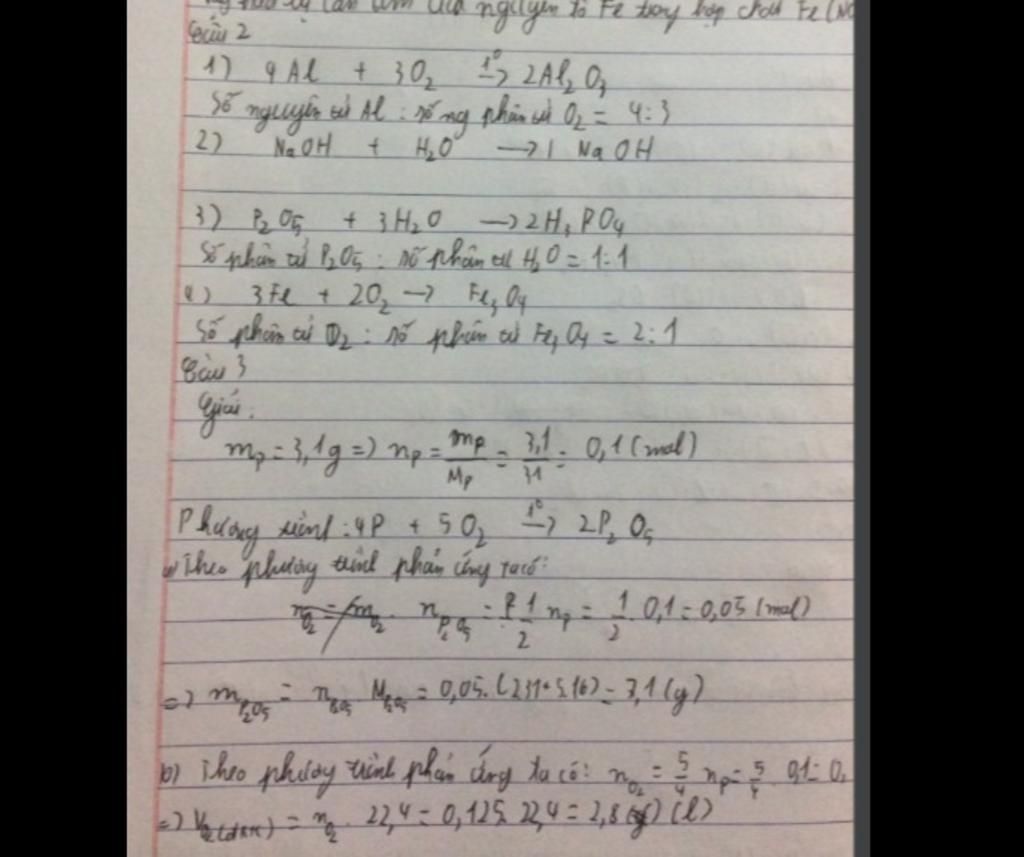 lý cần tìm của nguyên tố Fe trong hợp chất Fe(NO
Câu 2
1) 4Al + 3O₂ →(t⁰) 2Al₂O₃
Số nguyên tử Al : số ng phân tử O₂ = 4:3
2) NaOH + H₂O → 1 NaOH
3) P₂O₅ + 3H₂O → 2H₃PO₄
Số phân tử P₂O₅ : số phân tử H₂O = 1:1
4) 3Fe + 2O₂ → Fe₃O₄
Số phân tử O₂ : số phân tử Fe₃O₄ = 2:1
Câu 3
Giải:
m_P = 3,1g => n_P = m_P/M_P = 3,1/31 = 0,1 (mol)
Phương trình: 4P + 5O₂ →(t⁰) 2P₂O₅
a) Theo phương trình phản ứng ta có:
n_P₂O₅ = 1/2 n_P = 1/2 . 0,1 = 0,05 (mol)
=> m_P₂O₅ = n_P₂O₅ . M_P₂O₅ = 0,05.(2.31+5.16) = 3,1(g)
b) Theo phương trình phản ứng ta có: n_O₂ = 5/4 n_P = 5/4 . 0,1 = 0,
=> V_O₂(đktc) = n_O₂ . 22,4 = 0,125. 22,4 = 2,8 (l)